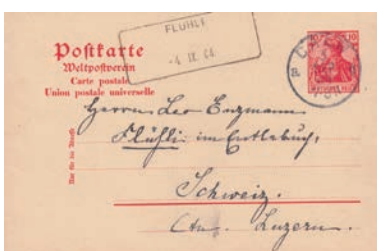 Postkarte
Weltpostverein
Carte postale
Union postale universelle
FLÜHLI
-4 IX 04
10 10
Herrn Leo Enzmann
Flühli im Entlebuch,
Schweiz.
Ctn. Luzern.